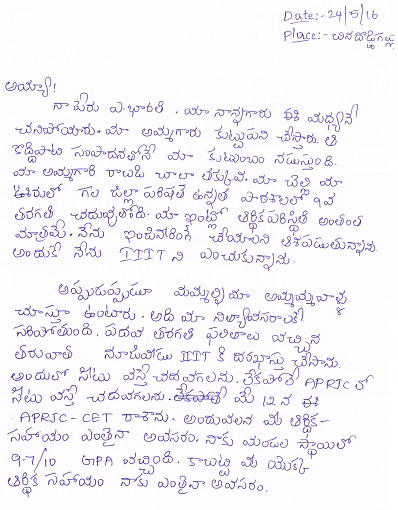 Date:- 24/5/16
Place:- చినదొడ్డిగల్లు
అయ్యా!
నా పేరు ఎ.భారతి. మా నాన్నగారు ఈ మధ్యనే
చనిపోయారు. మా అమ్మగారు కుట్టుపని చేస్తారు. ఆ
కొద్దిపాటి సంపాదనతోనే మా కుటుంబం నడుస్తుంది.
మా అమ్మగారి రాబడి చాలా తక్కువ. మా చెల్లి మా
ఊరులో గల జిల్లా పరిషత్ ఉన్నత పాఠశాలలో 9వ
తరగతి చదువుతోంది. మా ఇంట్లో ఆర్థిక పరిస్థితి అంతంత
మాత్రమే. నేను ఇంజనీరింగ్ చేయాలని ఆశపడుతున్నాను.
అందుకే నేను IIIT ని ఎంచుకున్నాను.
అప్పుడప్పుడూ మమ్మల్ని మా అమ్మమ్మవాళ్ళు
చూస్తూ ఉంటారు. అది మా నిత్యావసరాలకే
సరిపోతుంది. పదవ తరగతి ఫలితాలు వచ్చిన
తరువాత నూజివీడు IIIT కి దరఖాస్తు చేసాను.
అందులో సీటు వస్తే చదవగలను. లేకపోతే APRJC లో
సీటు వస్తే చదువగలను. మే 12 న ఈ
APRJC-CET రాశాను. అందువలన మీ ఆర్థిక-
సహాయం ఎంతైనా అవసరం. నాకు మండల స్థాయిలో
9.7/10 GPA వచ్చింది. కాబట్టి మీ యొక్క
ఆర్థిక సహాయం నాకు ఎంతైనా అవసరం.